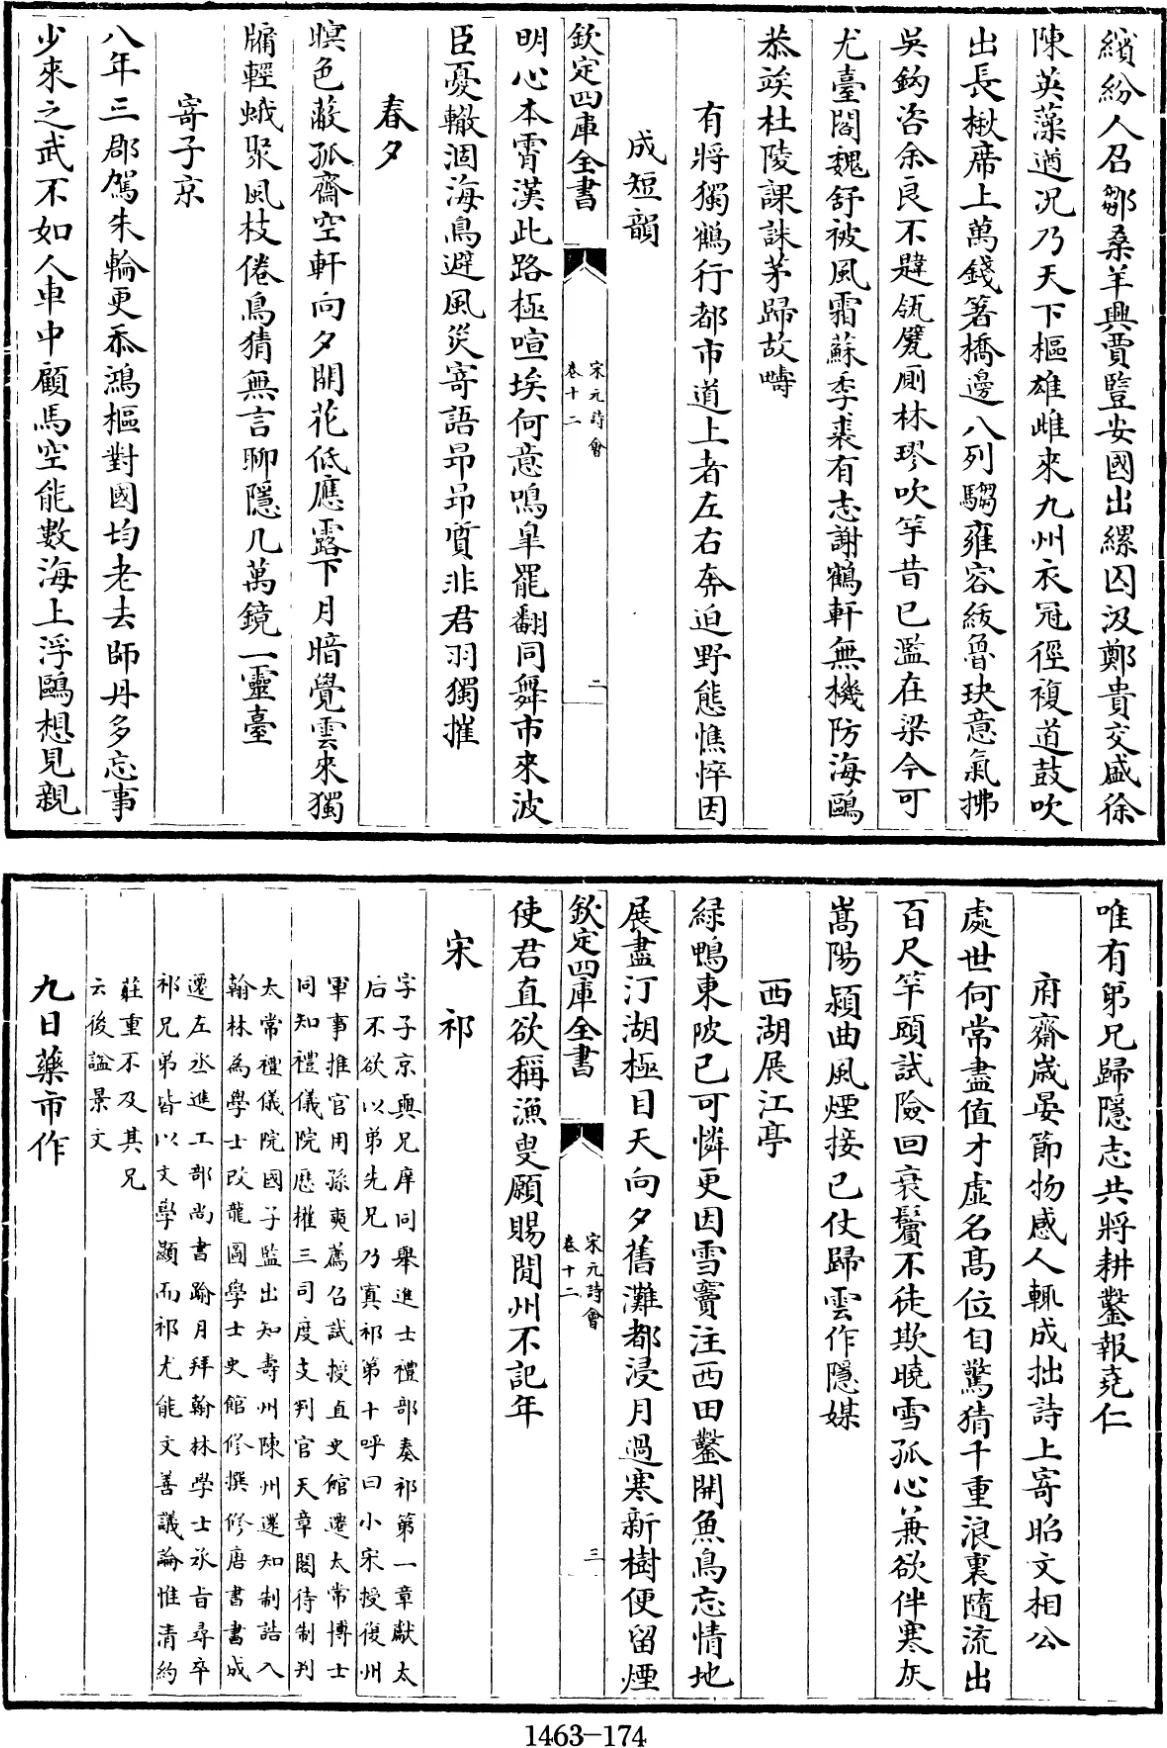 繽紛人召鄒桑羊興賈豎安國出縲囚汲鄭貴交盛徐
陳英藻遒況乃天下樞雄雌來九州衣冠徑複道鼓吹
出長楸席上萬錢箸橋邊八列騶雍容紱魯玦意氣拂
吳鈎咨余良不韙瓴甓廁林璆吹竽昔已濫在梁今可
尤臺閣魏舒被風霜蘇季裘有志謝鶴軒無機防海鷗
恭竢杜陵課誅茅歸故疇
有將獨鶴行都市道上者左右奔迫野態憔悴因
成短韻
欽定四庫全書
宋元詩會
卷十二
二
明心本霄漢此路極喧埃何意鳴臯罷翻同舞市來波
臣憂轍涸海鳥避風災寄語昂昂質非君羽獨摧
春夕
暝色蔽孤齋空軒向夕開花低應露下月暗覺雲來獨
牖輕蛾聚風枝倦鳥猜無言聊隱几萬鏡一靈臺
寄子京
八年三郡駕朱輪更忝鴻樞對國均老去師丹多忘事
少來之武不如人車中顧馬空能數海上浮鷗想見親
唯有弟兄歸隱志共將耕鑿報堯仁
府齋歲晏節物感人輒成拙詩上寄昭文相公
處世何常盡值才虛名高位自驚猜千重浪裏隨流出
百尺竿頭試險回衰鬢不徒欺曉雪孤心兼欲伴寒灰
嵩陽潁曲風煙接已仗歸雲作隱媒
西湖展江亭
綠鴨東陂已可憐更因雪竇注西田鑿開魚鳥忘情地
展盡汀湖極目天向夕舊灘都浸月過寒新樹便留煙
欽定四庫全書
宋元詩會
卷十二
三
使君直欲稱漁叟願賜閒州不記年
宋祁
字子京與兄庠同舉進士禮部奏祁第一章獻太
后不欲以弟先兄乃寘祁第十呼曰小宋授復州
軍事推官用孫奭薦召試授直史館遷太常博士
同知禮儀院歷權三司度支判官天章閣待制判
太常禮儀院國子監出知壽州陳州還知制誥入
翰林為學士改龍圖學士史館修撰修唐書書成
遷左丞進工部尚書踰月拜翰林學士承旨尋卒
祁兄弟皆以文學顯而祁尤能文善議論惟清約
莊重不及其兄
云後諡景文
九日藥市作
1463-174